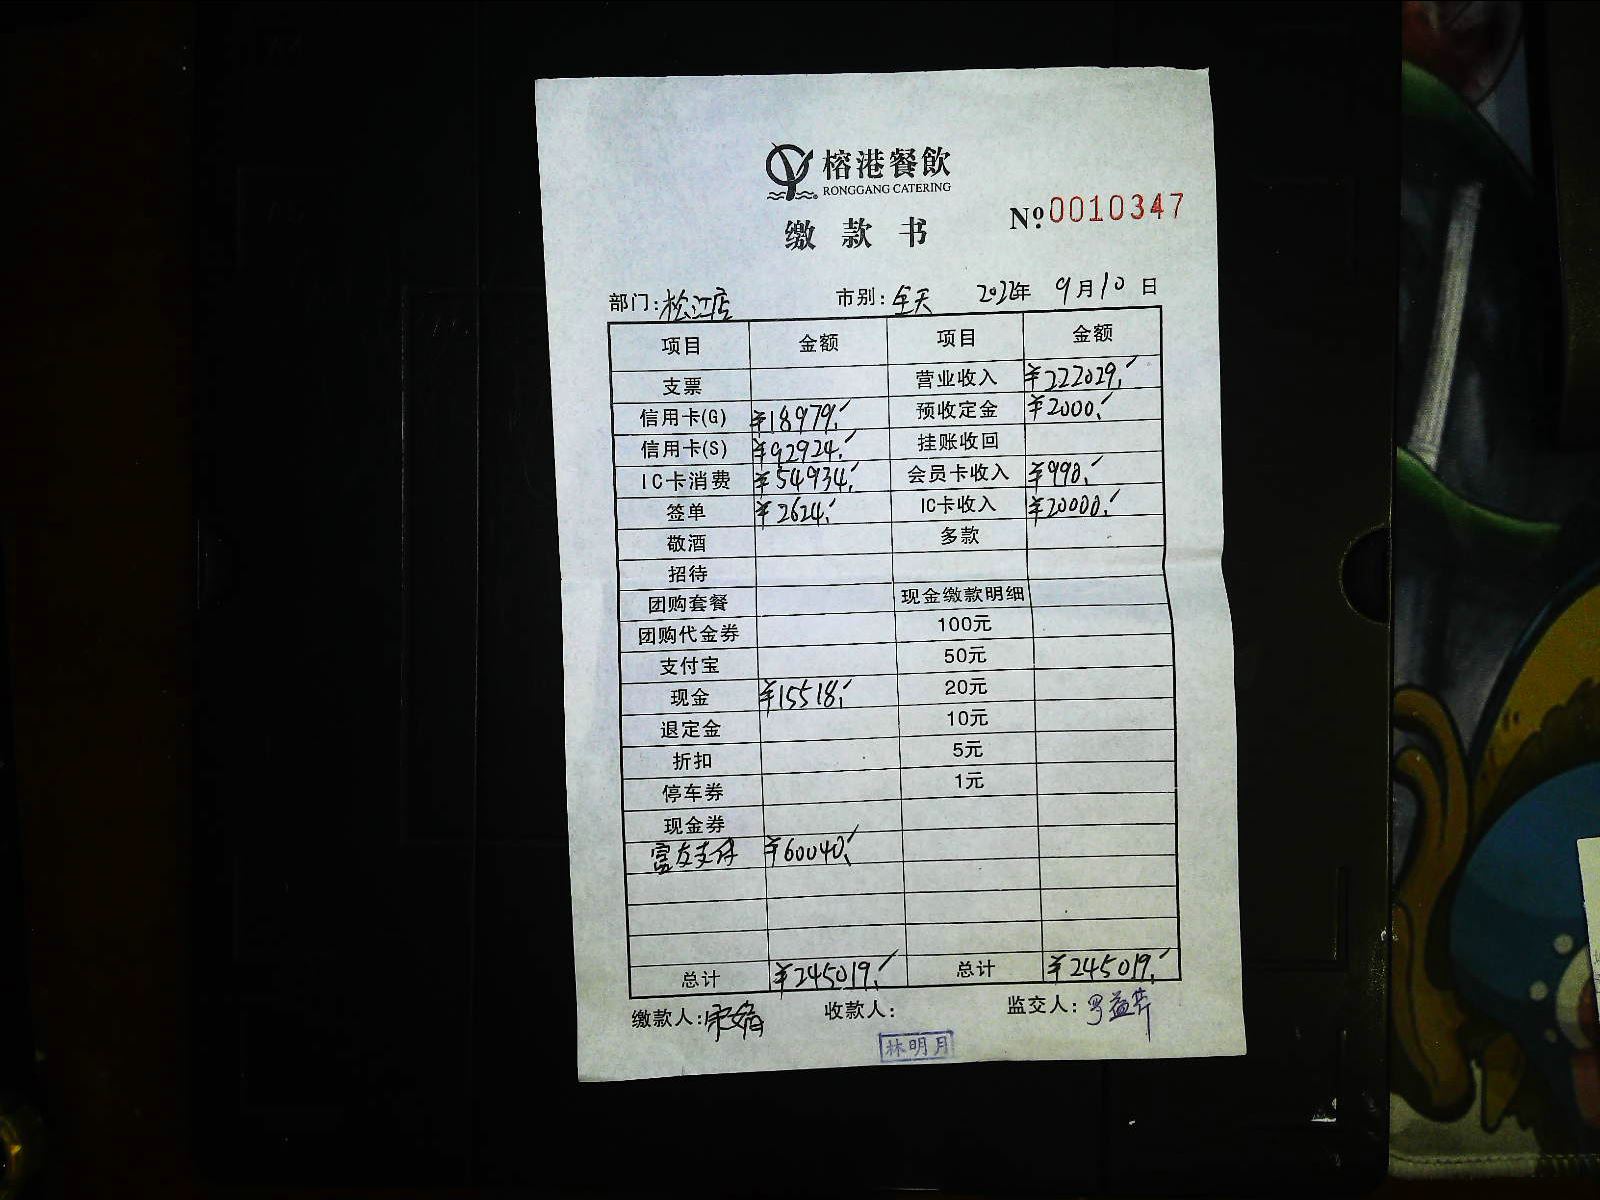 榕港餐飲
RONGGANG CATERING
缴款书
№ 0010347
部门:松江店 市别:全天 2022年 9月10日
项目 金额 项目 金额
支票 营业收入 ¥222029.
信用卡(G) ¥18979. 预收定金 ¥2000.
信用卡(S) ¥92924. 挂账收回
IC卡消费 ¥54934. 会员卡收入 ¥990.
签单 ¥2624. IC卡收入 ¥20000.
敬酒 多款
招待
团购套餐 现金缴款明细
团购代金券 100元
支付宝 50元
现金 ¥15518. 20元
退定金 10元
折扣 5元
停车券 1元
现金券
富友支付 ¥60040.
总计 ¥245019. 总计 ¥245019.
缴款人: 收款人: 监交人:罗益芹
林明月